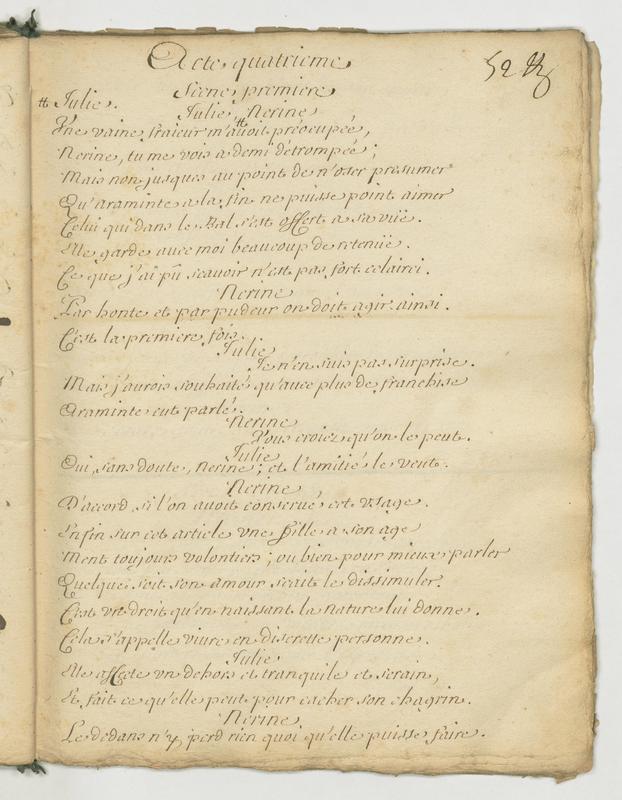 Acte quatrieme
52
Scene premiere
Julie. Julie, Nerine
Vne vaine fraieur m'auoit préocupée,
Nerine, tu me vois a demi détrompée ;
Mais non jusques au point de n'oser presumer
Qu'araminte a la fin ne puisse point aimer
Celui qui dans le Bal s'est offert a sa vüe.
Elle garde auec moi beaucoup de retenüe.
Ce que j'ai pû scauoir n'est pas fort eclairci.
Nerine
Par honte et par pudeur on doit agir ainsi.
C'est la premiere fois.
Julie
Je n'en suis pas surprise.
Mais j'aurois souhaité qu'auec plus de franchise
Araminte eut parlé.
Nerine
Vous croiez qu'on le peut.
Julie
Oui, sans doute, Nerine ; et l'amitié le veut.
Nerine
D'accord, si l'on auoit conserué cet vsage.
Enfin sur cet article vne fille a son age
Ment toujours volontiers ; ou bien pour mieux parler
Quelque soit son amour scait le dissimuler.
C'est vn droit qu'en naissant la nature lui donne.
Cela s'appelle viure en discrette personne.
Julie
Elle affecte vn dehors et tranquile et serain,
Et fait ce qu'elle peut pour cacher son chagrin.
Nerine
Le dedans n'y perd rien quoi qu'elle puisse faire.